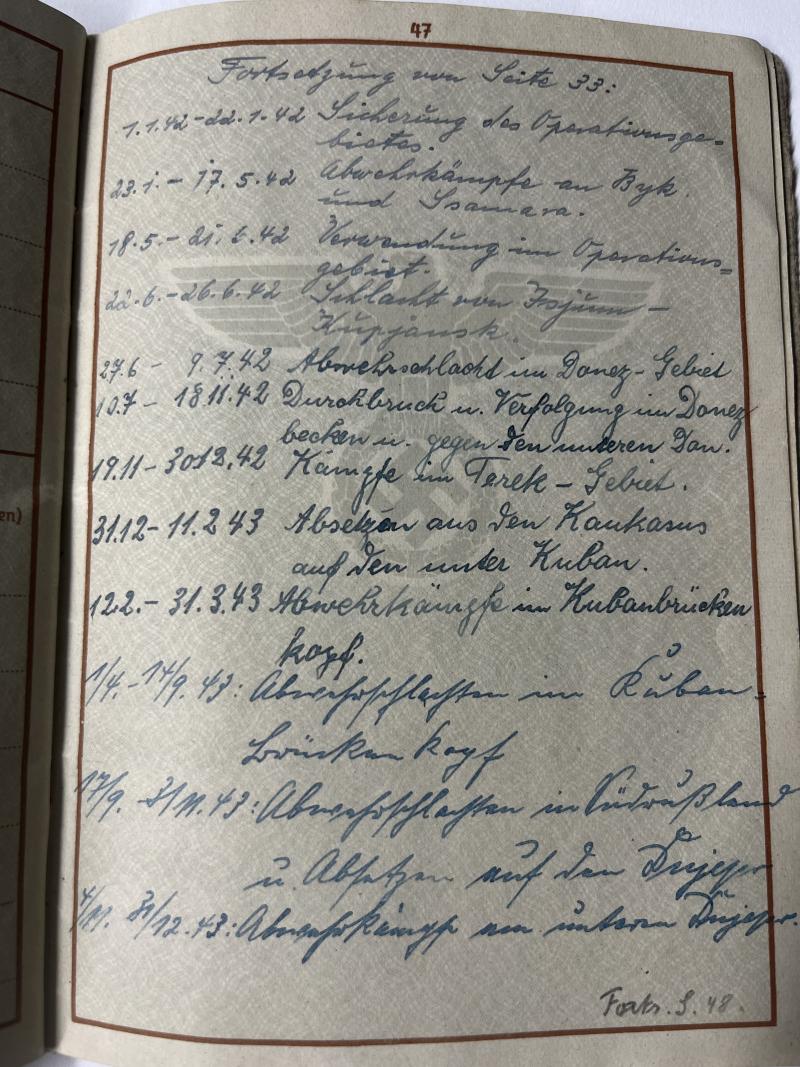 47
Fortsetzung von Seite 33:
1.1.42-22.1.42 Sicherung des Operationsge-
bietes.
23.1.-17.5.42 Abwehrkämpfe an Byk
und Ssamara.
18.5.-21.6.42 Verwendung im Operations-
gebiet.
22.6.-26.6.42 Schlacht von Isjum-
Kupjansk.
27.6 - 9.7.42 Abwehrschlacht im Donez-Gebiet
10.7 - 18.11.42 Durchbruch u. Verfolgung im Donez
becken u. gegen den unteren Don.
19.11 - 30.12.42 Kämpfe im Terek-Gebiet.
31.12 - 11.2.43 Absetzen aus den Kaukasus
auf den unter Kuban.
12.2. - 31.3.43 Abwehrkämpfe im Kubanbrücken
kopf.
1/4.-14/9.43: Abwehrschlachten im Kuban-
Brückenkopf
17/9. -3/11.43: Abwehrschlachten in Südrußland
u. Absetzen auf den Dnjepr
4/11. 31/12.43: Abwehrkämpfe am unteren Dnjepr.
Forts. S. 48.
en)